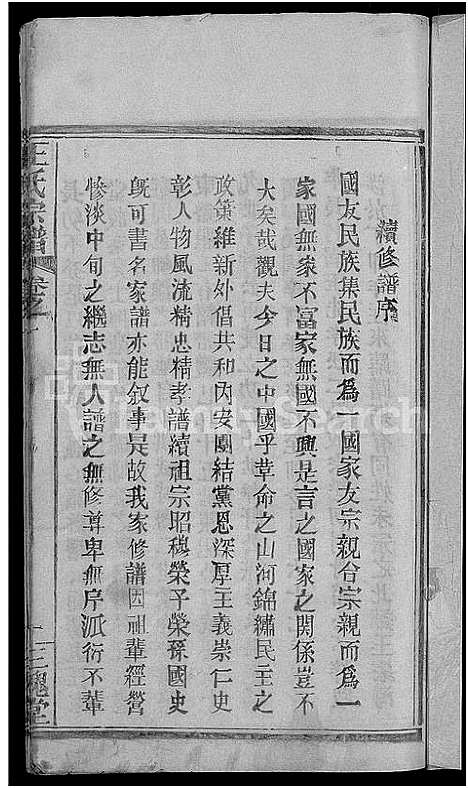 續修譜序
國友民族集民族而爲一國家友宗親合宗親而爲一
家國無家不富家無國不興是言之國家之關係豈不
大矣哉觀夫今日之中國乎革命之山河錦繡民主之
政策維新外倡共和內安團結黨恩深厚主義崇仁史
彰人物風流精忠精孝譜續祖宗昭穆榮子榮孫國史
既可書名家譜亦能叙事是故我家修譜因祖輩經營
慘淡中旬之繼志無人譜之無修尊卑無序派衍不輩
王氏宗譜
卷之一
一
三槐堂
FamilySearch